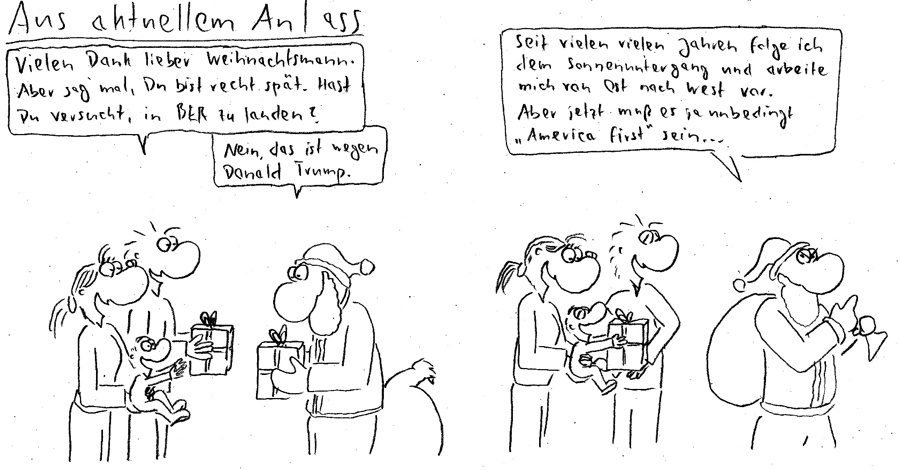 Aus aktuellem Anlass
Vielen Dank lieber Weihnachtsmann.
Aber sag mal, Du bist recht spät. Hast
Du versucht, in BER zu landen?
Nein, das ist wegen
Donald Trump.
Seit vielen vielen Jahren folge ich
dem Sonnenuntergang und arbeite
mich von Ost nach West vor.
Aber jetzt muß es ja unbedingt
„America first" sein...